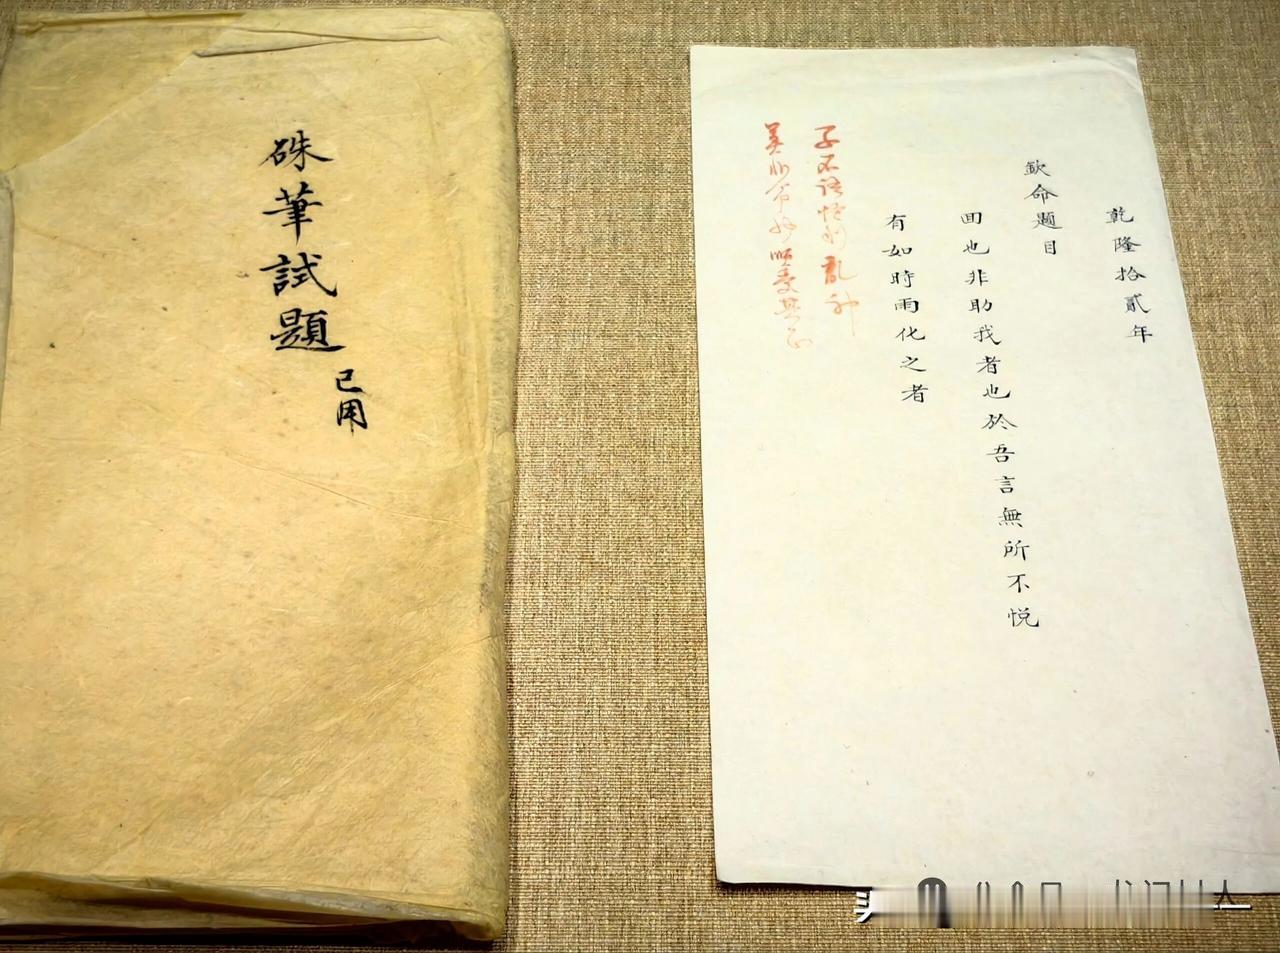 硃筆試題
已用
乾隆拾貳年
欽命題目
囬也非助我者也於吾言無所不悅
有如時雨化之者
子不語怪力亂神
莫非命也順受其正